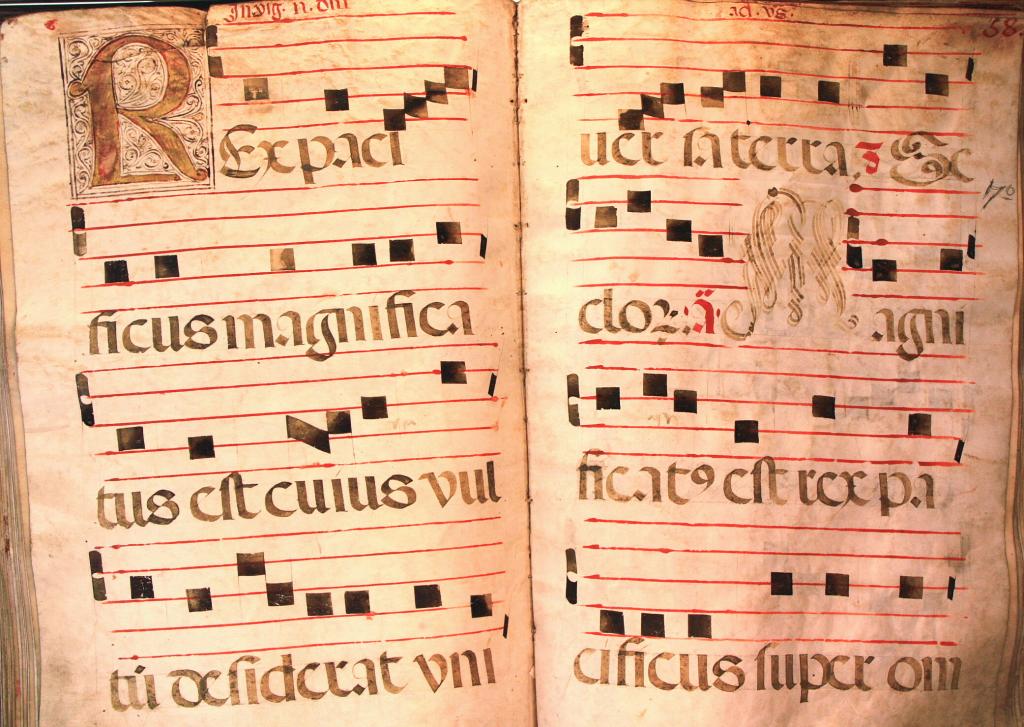 In vig. n. dni
REx paci
ficus magnifica
tus est cuius vul
tū desiderat vni
ad vs.
58.
uer sa terra. Ã Se
clor. ã Magni
ficatꝰ est rex pa
cificus super om